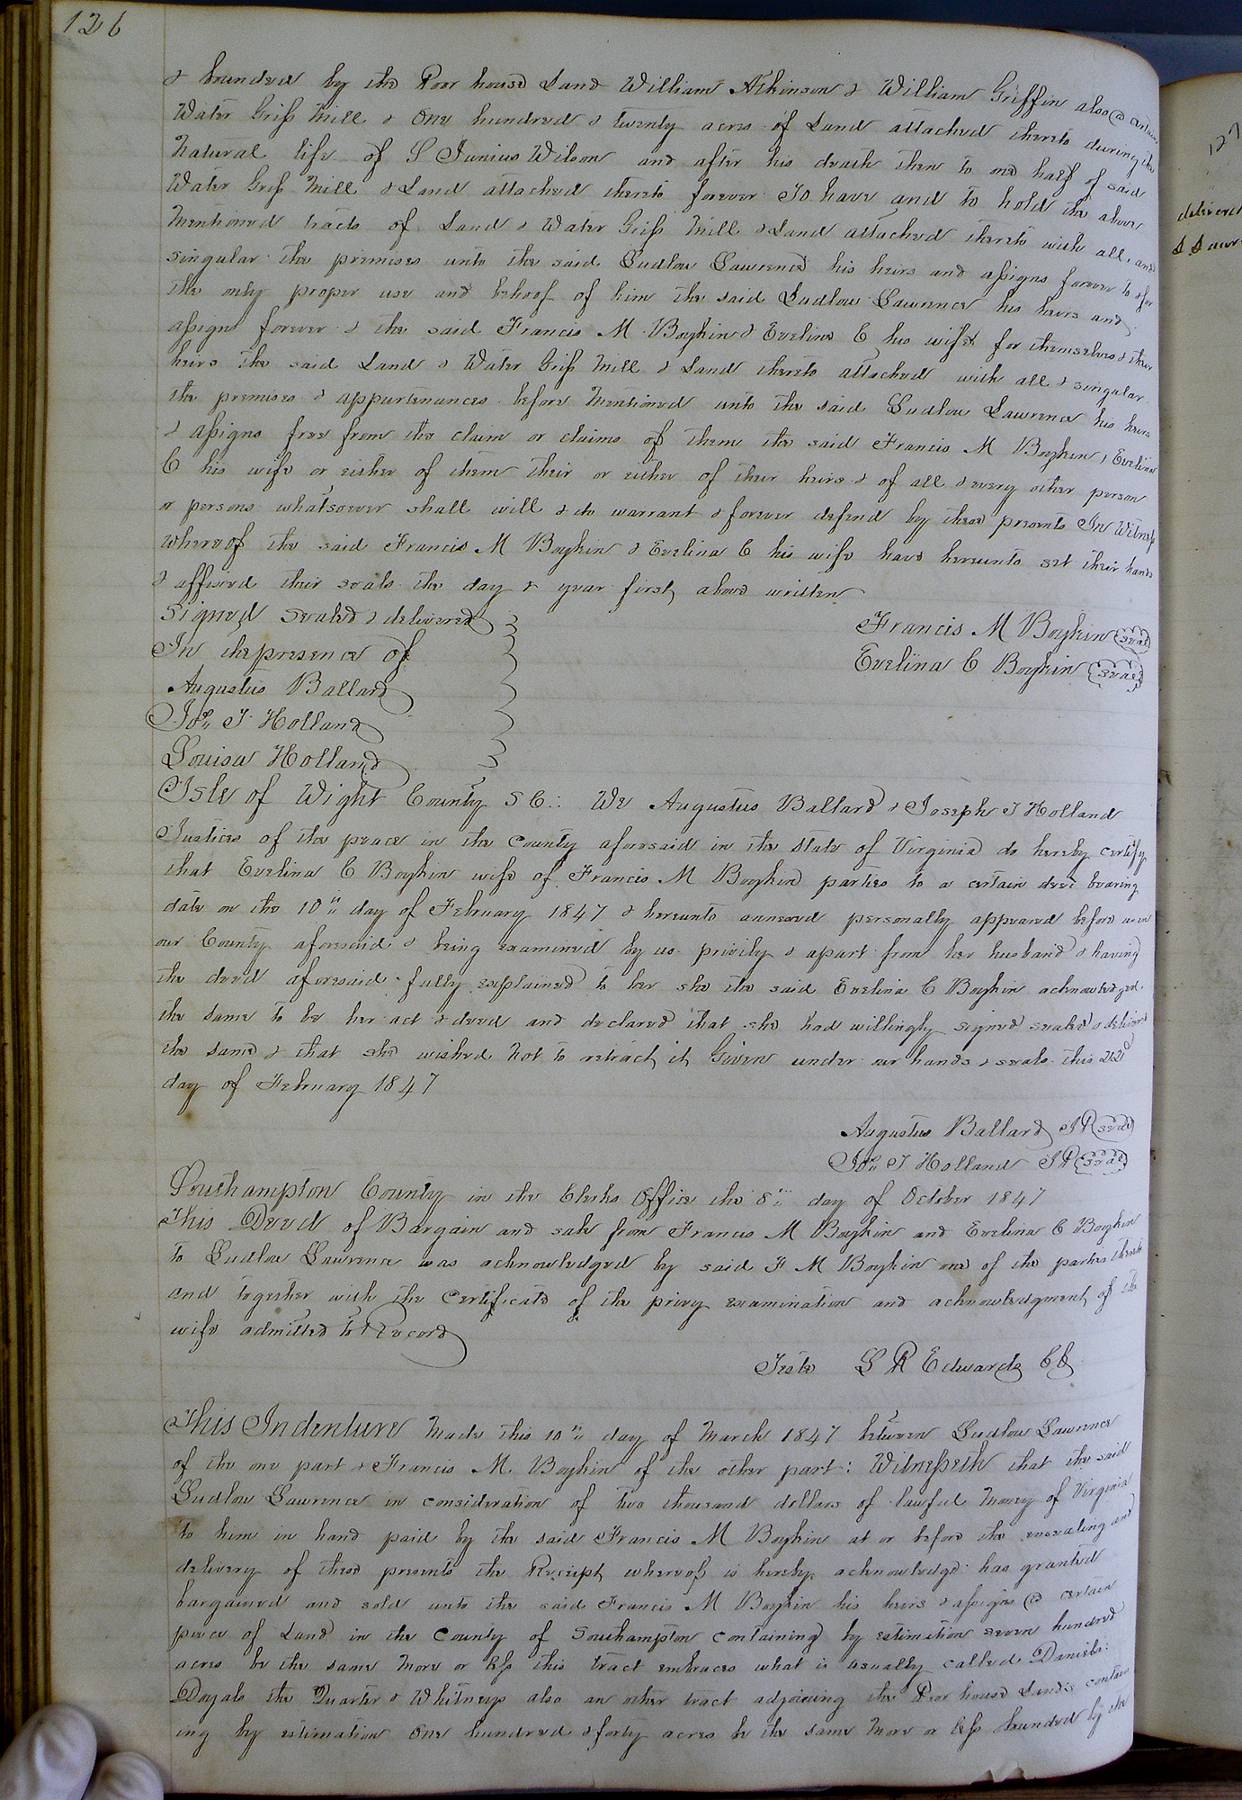 126
& bounded by the Poor house Land William Atkinson & William Griffin also @ certain
Water Grist Mill & One hundred & twenty acres of Land attached thereto during the
Natural life of S Junius Wilson and after his death then to one half of said
Water Grist Mill & Land attached thereto forever To have and to hold the above
Mentioned tracts of Land & Water Grist Mill & Land attached thereto with all and
singular the premises unto the said Ludlow Lawrence his heirs and assigns forever to &for
the only proper use and behoof of him the said Ludlow Lawrence his heirs and
assigns forever & the said Francis M Boykin & Evelina C his wife for themselves & their
heirs the said Land & Water Grist Mill & Land thereto attached with all & singular
the premises & appurtenances before Mentioned unto the said Ludlow Lawrence his heirs
& assigns free from the claim or claims of them the said Francis M Boykin & Evelina
C his wife or either of them their or either of their heirs & of all & every other person
or persons whatsoever shall will & do warrant & forever defend by these presents In Witness
whereof the said Francis M Boykin & Evelina C his wife have hereunto set their hands
& affixed their seals the day & year first above written
Signed sealed & delivered
In the presence of
Augustus Ballard
Jos. J Holland
Louisa Holland
Francis M Boykin (seal)
Evelina C Boykin (seal)
Isle of Wight County S C: We Augustus Ballard & Joseph J Holland
Justices of the peace in the County aforesaid in the State of Virginia do hereby certify
that Evelina C Boykin wife of Francis M Boykin parties to a certain deed bearing
date on the 10th day of February 1847 & hereunto annexed personally appeared before us in
our County aforesaid & being examined by us privily & apart from her husband & having
the deed aforesaid fully explained to her she the said Evelina C Boykin acknowledged
the same to be her act & deed and declared that she had willingly signed sealed & delivered
the same & that she wished Not to retract it Given under our hands & seals this 22d
day of February 1847
Augustus Ballard JP (seal)
Jos. J Holland JP (seal)
Southampton County in the Clerks Office the 8th day of October 1847
This Deed of Bargain and sale from Francis M Boykin and Evelina C Boykin
to Ludlow Lawrence was acknowledged by said F M Boykin one of the parties thereto
and together with the Certificate of the privy examination and acknowledgment of the
wife admitted to Record
Teste L R Edwards CC
This Indenture Made this 10th day of March 1847 between Ludlow Lawrence
of the one part & Francis M. Boykin of the other part: Witnesseth that the said
Ludlow Lawrence in consideration of two thousand dollars of lawful Money of Virginia
to him in hand paid by the said Francis M Boykin at or before the ensealing and
delivery of these presents the Receipt whereof is hereby acknowledgd has granted
bargained and sold unto the said Francis M Boykin his heirs & assigns @ certain
peace of Land in the County of Southampton containing by estimation seven hundred
acres be the same More or less this tract embraces what is usually called Daniels:
Doyals the Quarter & Whitneys also an other tract adjoining the Poor house Lands contain
ing by estimation One hundred & forty acres be the same More or less bounded by the
127
delivered